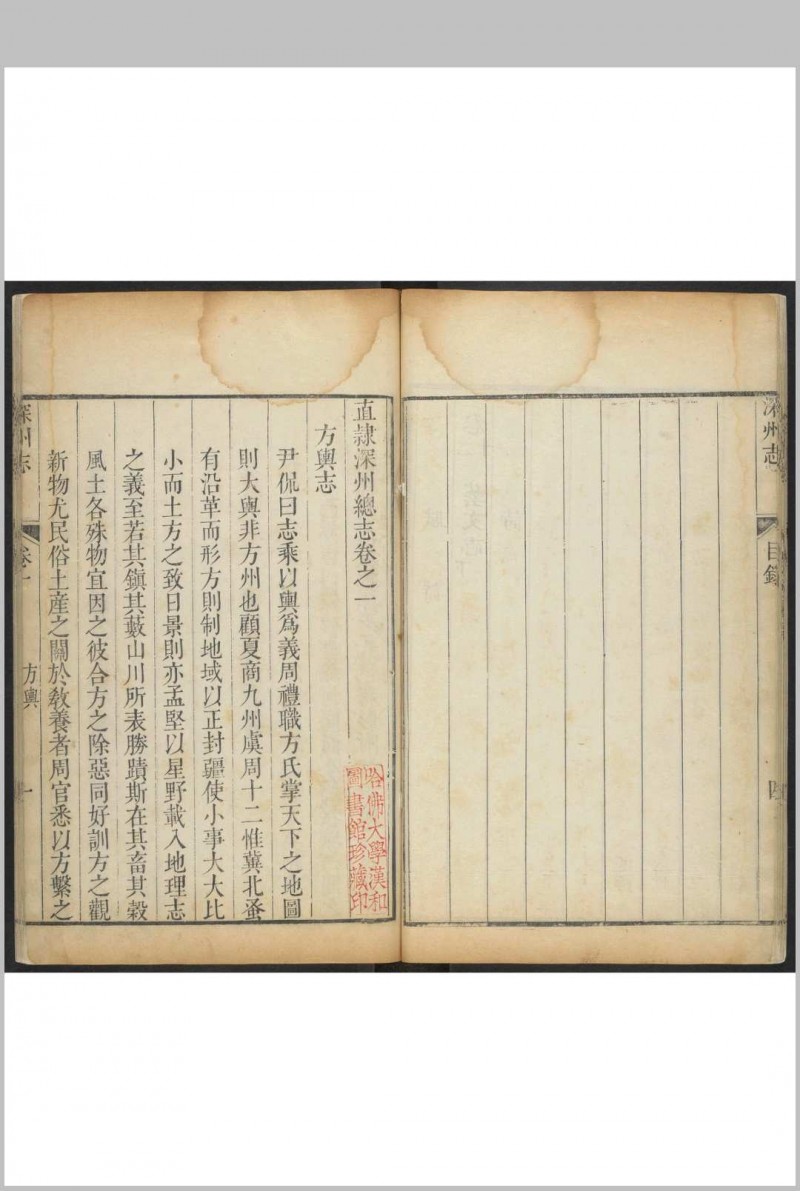 深州志
目錄
四
直隸深州總志卷之一
方輿志
尹侃曰志乘以輿爲義周禮職方氏掌天下之地圖
則大輿非方州也顧夏商九州虞周十二惟冀北蚤
有沿革而形方則制地域以正封疆使小事大大比
小而土方之致日景則亦孟堅以星野載入地理志
之義至若其鎭其藪山川所表勝蹟斯在其畜其穀
風土各殊物宜因之彼合方之除惡同好訓方之觀
新物尤民俗土産之關於敎養者周官悉以方繫之
哈佛大學漢和
圖書館珍藏印
深州志
卷一
方輿
一